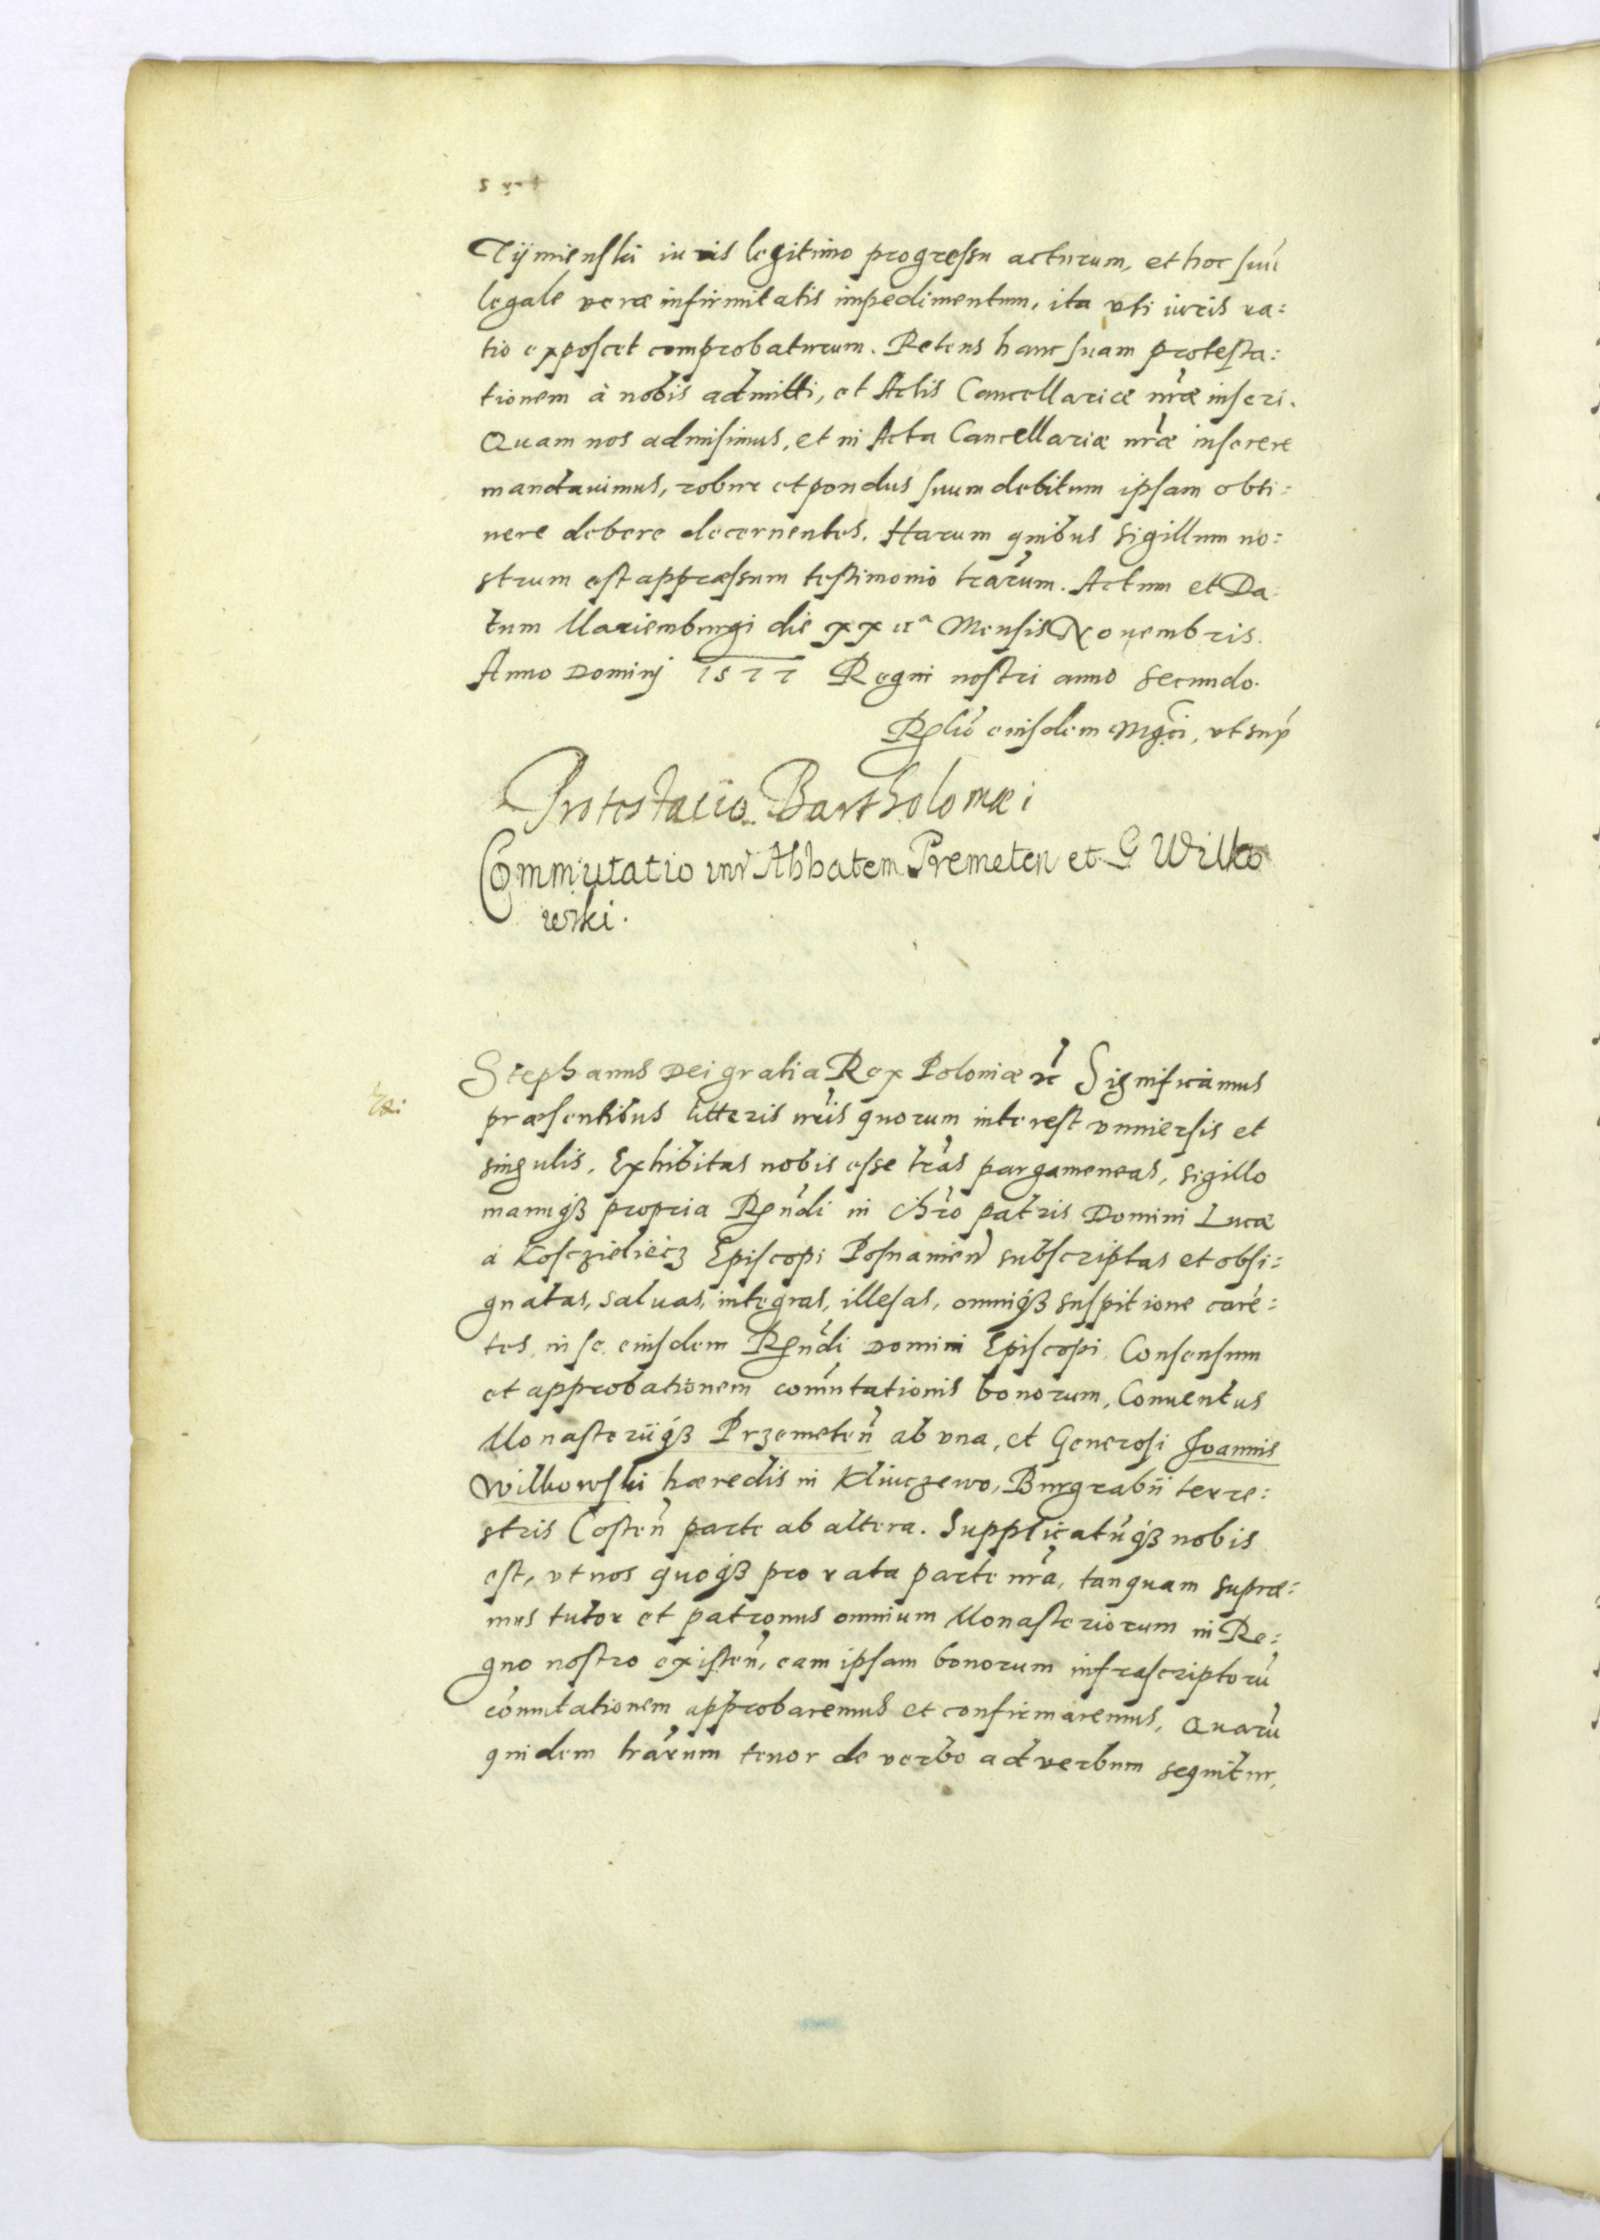 Tijmienski iuris legitimo progressu acturum, et hoc suũ
legale veræ infirmitatis impedimentum, ita vti iuris ra:
tio exposcet comprobaturum. Petens hanc suam protesta:
tionem à nobis admitti, et Actis Cancellariæ nr̃æ inseri.
Quam nos admisimus, et in Acta Cancellariæ nr̃æ inserere
mandauimus, robur et pondus suum debitum ipsam obti:
nere debere decernentes. Harum quibus sigillum no:
strum est appræssum testimonio lr̃arum. Actum et Da:
tum Mariemburgi die xx iiᵃ Mensis Nouembris.
Anno Dominj 1577 Regni nostri anno secundo.
Rel̃io eiusdem Mgc̃i, vt sup̃
Protestatio Bartholomæi
Commutatio int̃ Abbatem Premeten et G Wilko
wski.
Stephanus Dei gratia Rex Poloniæ &c̃ Significamus
præsentibus litteris nr̃is quorum interest vniuersis et
singulis. Exhibitas nobis esse lr̃as pargameneas, sigillo
manuq̃ꝫ propria Rẽndi in Chr̃o patris Domini Lucæ
à Kosczieliecz Episcopi Posnanien̄ subscriptas et obsi:
gnatas, saluas, integras, illesas, omniq̃ꝫ suspitione carẽ:
tes, in se eiusdem Rẽndi Domini Episcopi Consensum
et approbationem com̃utationis bonorum, Conuentus
Monasteriiq̃ꝫ Przemeten̄ ab vna, et Generosi Joannis
Wilkowski hæredis in Kluczewo, Burgrabii terre:
stris Costen̄ parte ab altera. Supplicatũq̃ꝫ nobis
est, vt nos quoq̃ꝫ pro rata parte nr̃a, tanquam supræ:
mus tutor et patronus omnium Monasteriorum in Re:
gno nostro existen̄, eam ipsam bonorum infrascriptorũ
com̃utationem approbaremus et confirmaremus, Quarũ
quidem lr̃arum tenor de verbo ad verbum sequitur,